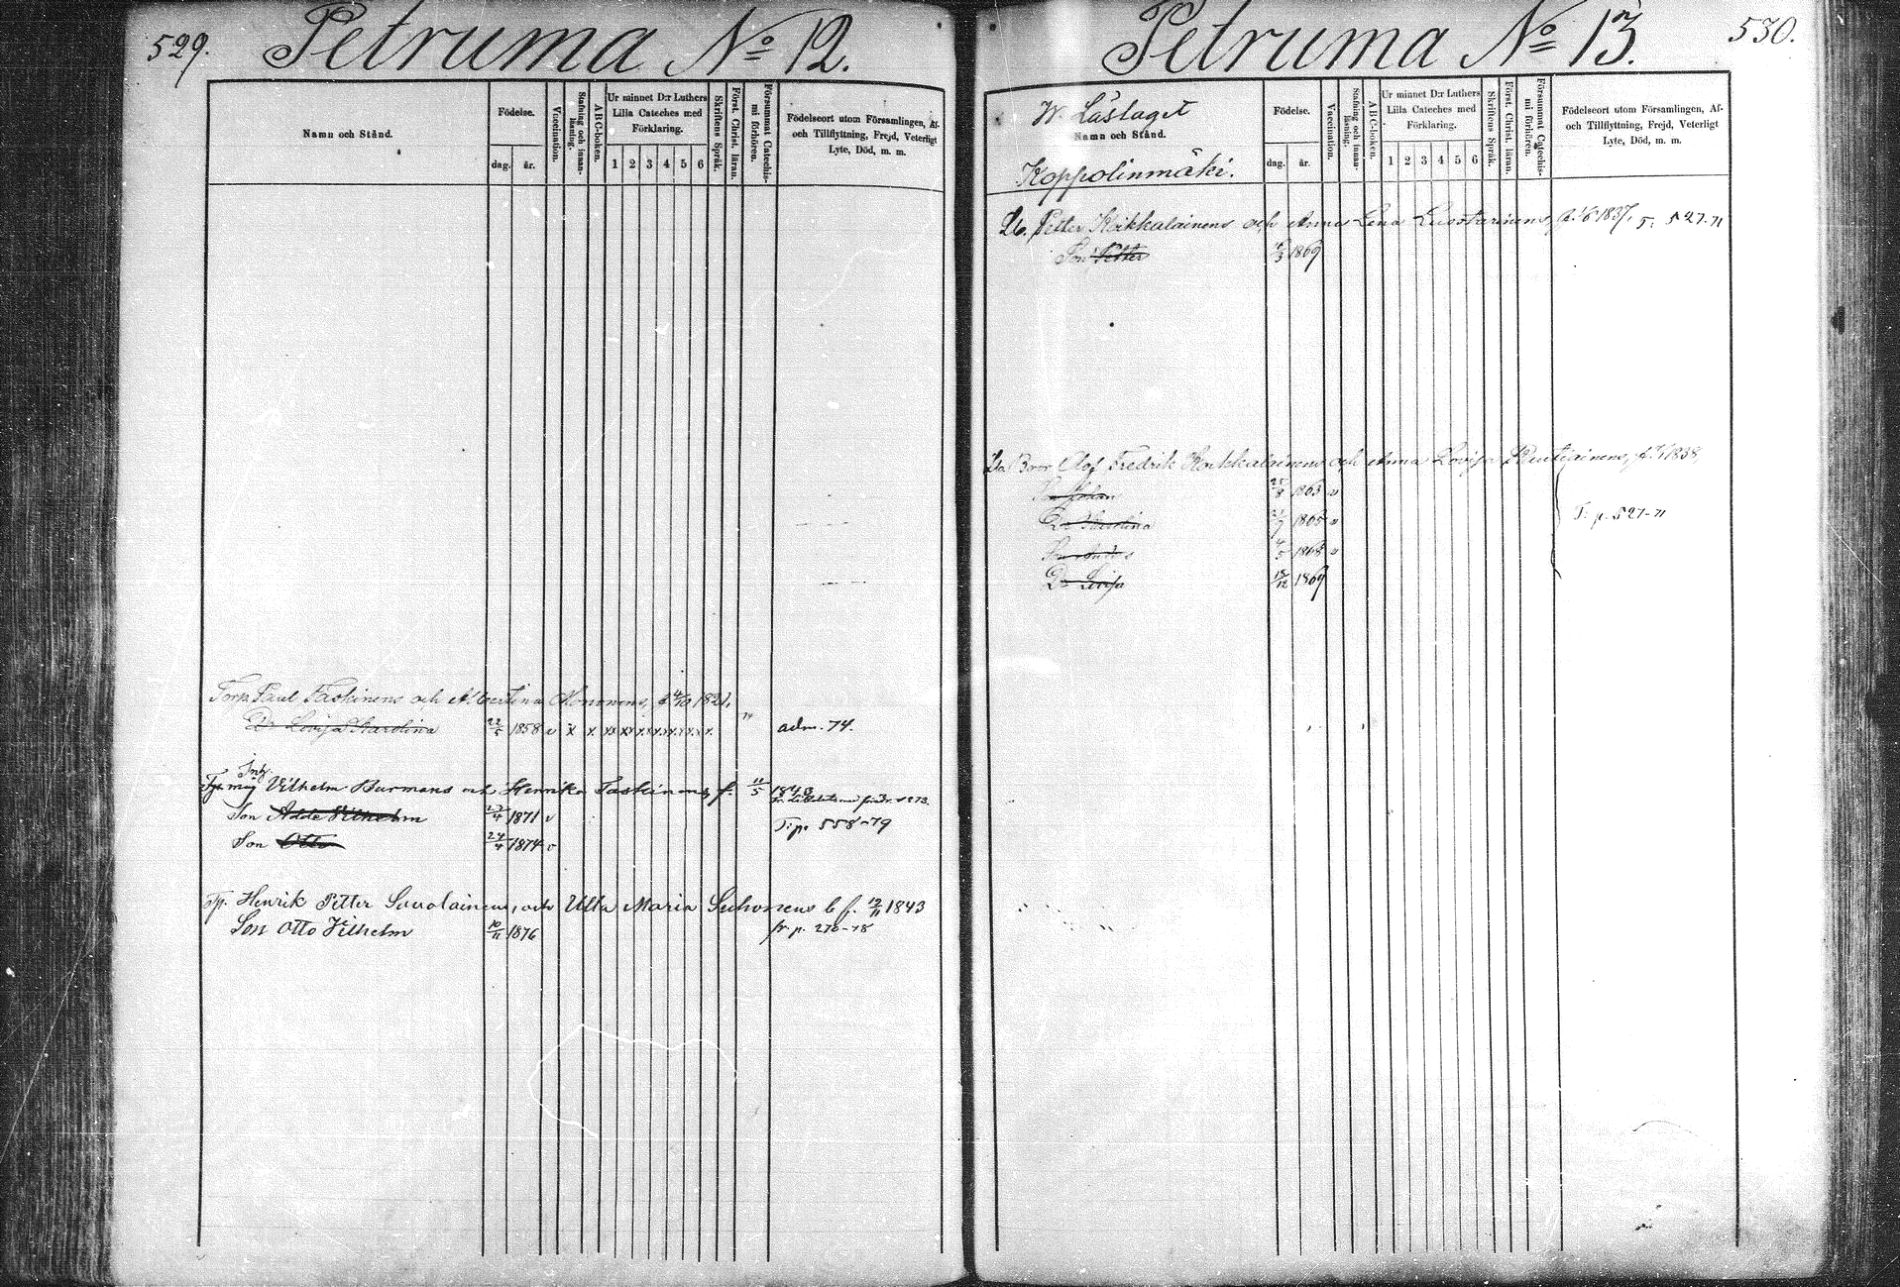 529.
Petruma No 12.
Namn och Stånd.
Födelse.
dag. år.
Vaccination.
Stafning och innan-läsning.
ABC-boken.
Ur minnet D:r Luthers
Lilla Cateches med
Förklaring.
1 2 3 4 5 6
Skriftens Språk.
Först. Christ. läran.
Försummat Catechis-mi förhören.
Födelseort utom Församlingen, Af-
och Tillflyttning, Frejd, Veterligt
Lyte, Död, m. m.
Torp. Paul Taskinens och Albertina Kononens, f. 4/10 1821.
Dr Lovisa Karolina 22/5 1858 v x x xx xx x x x x x x x. adm. 74.
Inh.
Vilhelm Burmans och Henrika Taskinens f. 11/5 1843
Son Adde Vilhelm 27/4 1871 v T. p. 558-79
Son Otto 24/4 1874 v
Tp. Henrik Petter Savolainens, och Ulla Maria Suhonens b f. 12/11 1843
Son Otto Vilhelm 10/11 1876 fr. p. 276-78
530.
Petruma No 13.
W. Läslaget
Namn och Stånd.
Koppolinmäki.
Födelse.
dag. år.
Vaccination.
Stafning och innan-läsning.
ABC-boken.
Ur minnet D:r Luthers
Lilla Cateches med
Förklaring.
1 2 3 4 5 6
Skriftens Språk.
Först. Christ. läran.
Försummat Catechis-mi förhören.
Födelseort utom Församlingen, Af-
och Tillflyttning, Frejd, Veterligt
Lyte, Död, m. m.
Petter Koikkalainens och Anna Lena Luostarinens, 1837, 527-71
Son Petter 1869
Bror Olof Fredrik Koikkalainens och Anna Lovisa 1838,
Son Johan 25/8 1863 v
Dr Karolina 1865 v T. p. 527-71
4/5 1868 v
Dr Lovisa 13/12 1869